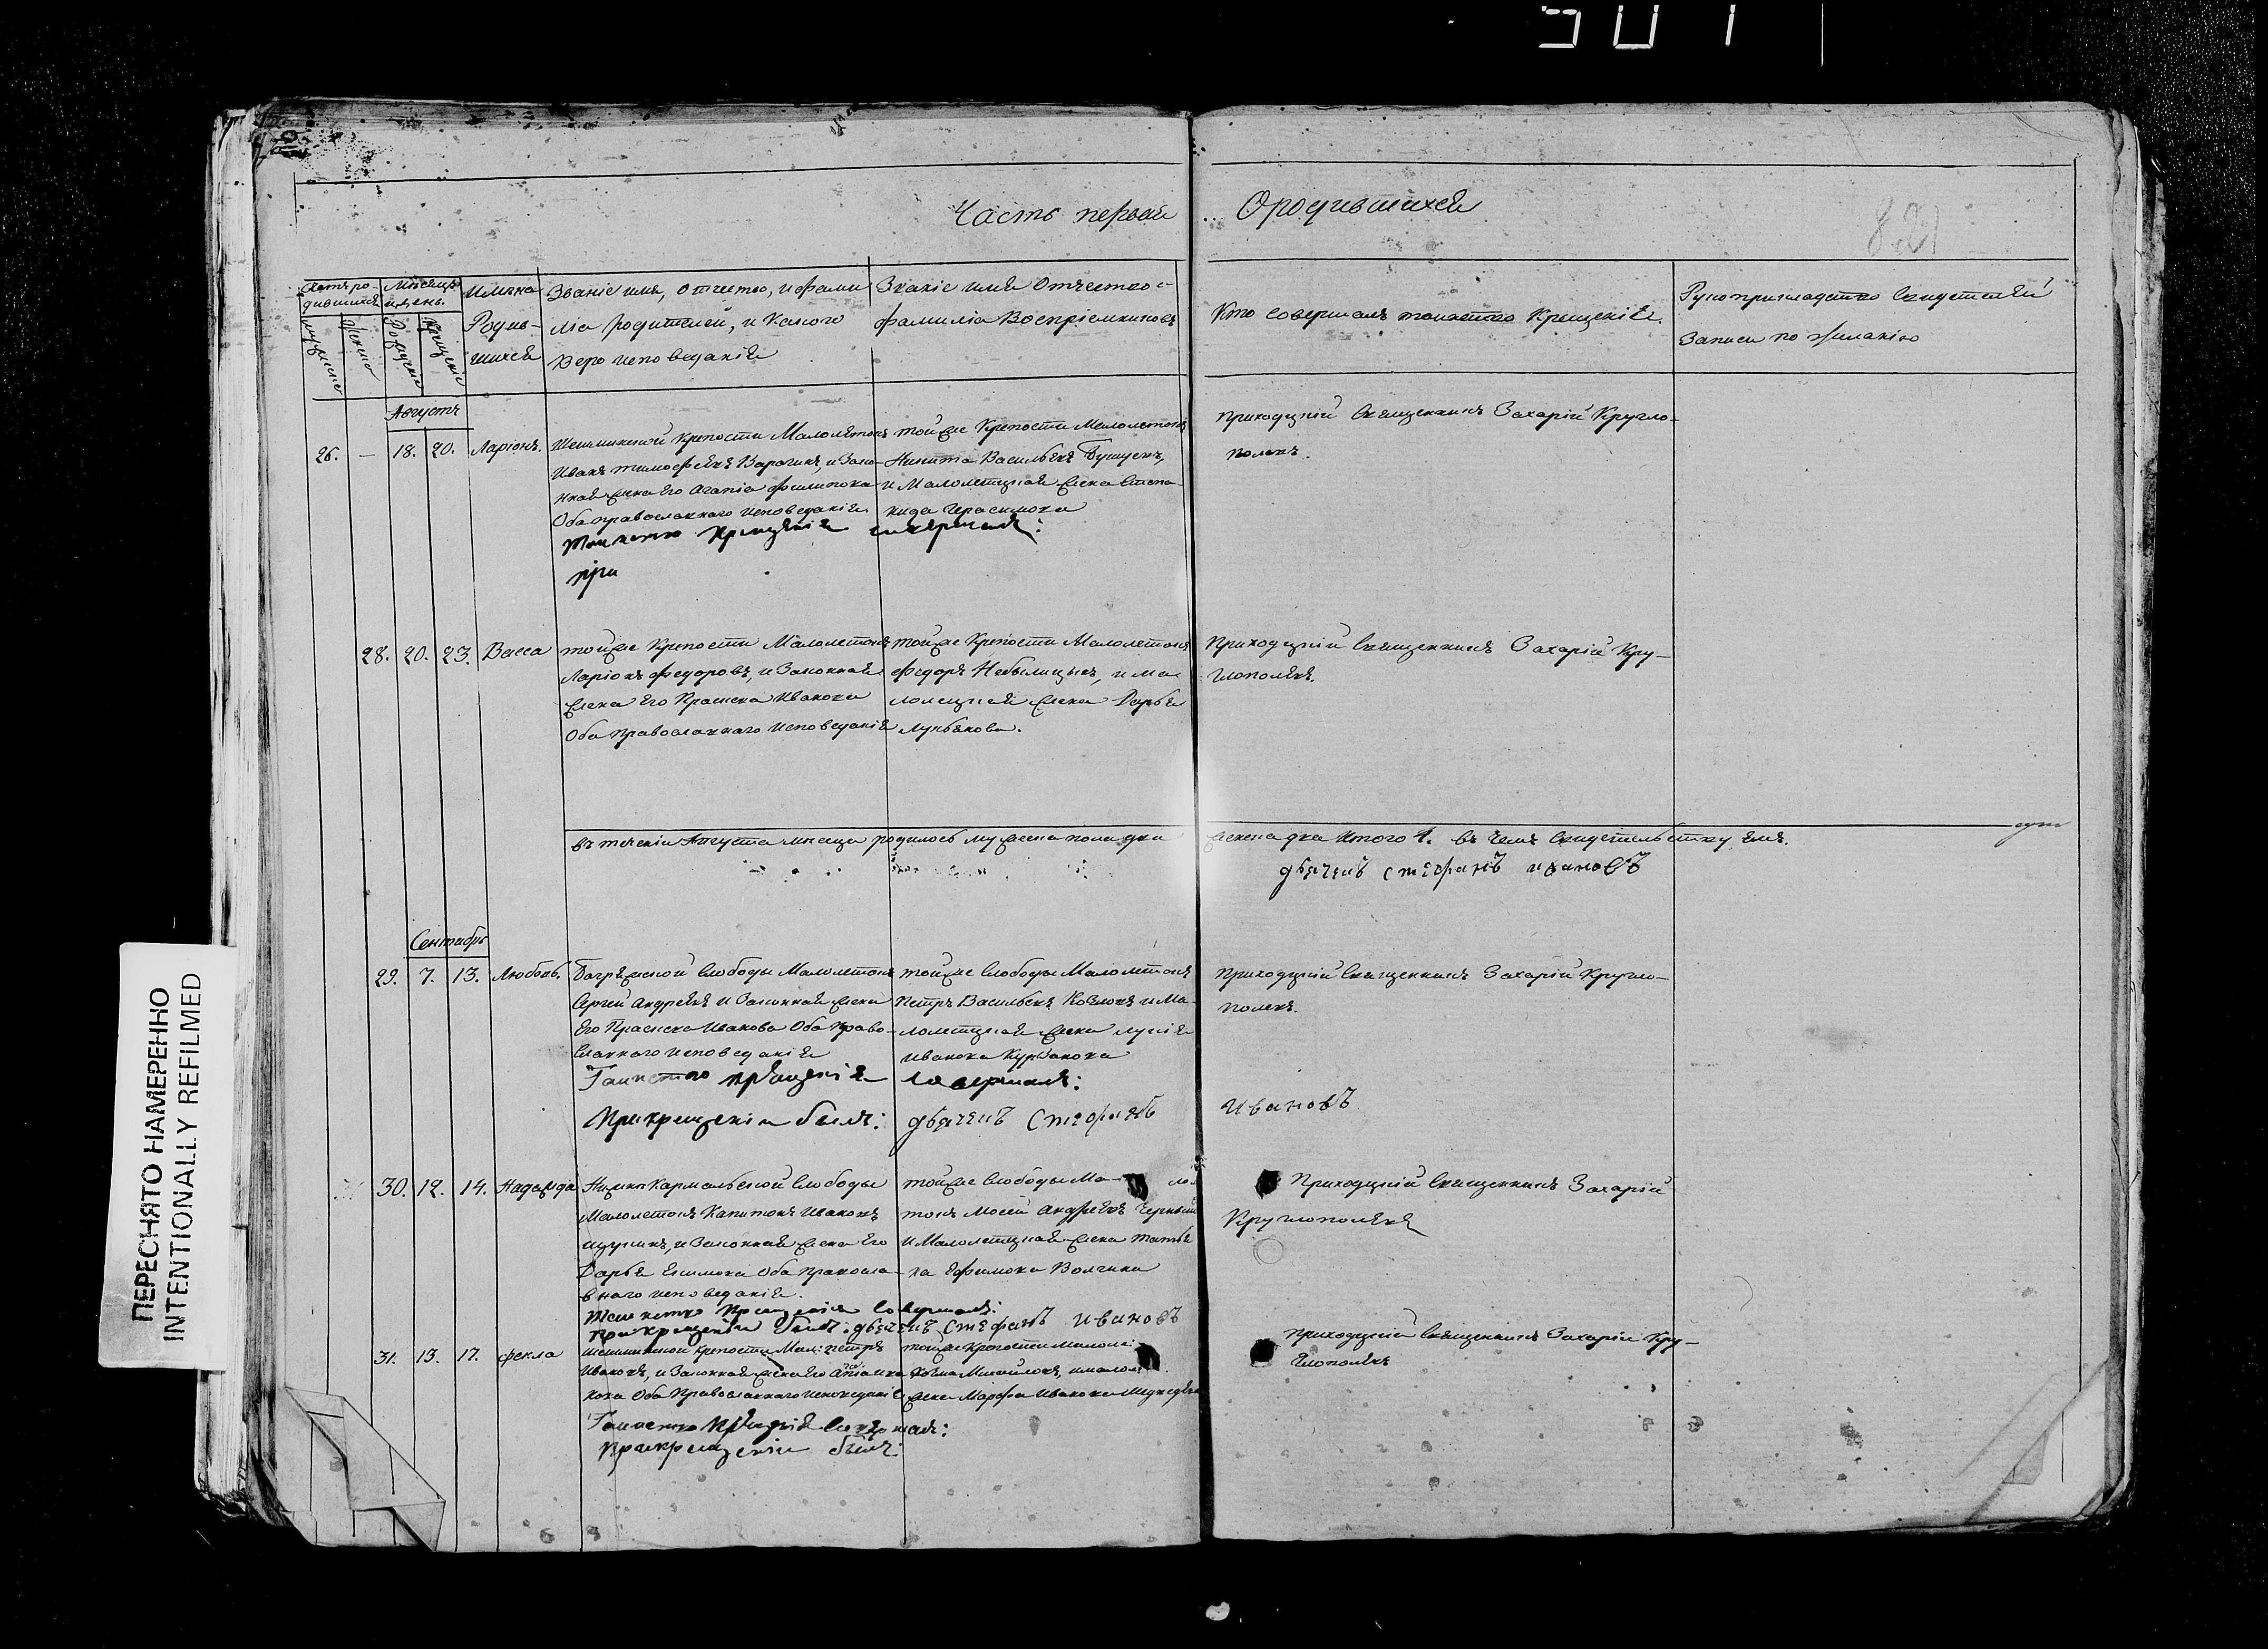 Часть первая
О родившихся
821
Счетъ ро-
дившихся
Мѣсяцъ
и день.
Имяна
Родив-
шихся
мужеска
женска
Рожденія
Крещенія
Званіе имя, отчество, и фами
лія родителей, и какого
вероисповеданія
Званіе имя Отчество
фамилія Воспріемниковъ
Кто совершалъ таинство Крещенія.
Рукоприкладство свидетелей
Записи по желанію
Августъ
26. — 18. 20. Ларіонъ.
Шешминской крепости Малолетокъ
Иванъ тимофѣевъ Варагинъ, и зако-
нная жена Его Агапіа филипова
Оба православнаго исповеданія.
Таинство Крещенія совершалъ:
при
тойже Крепости Малолетокъ
Никита Васильевъ
и Малолетцкая жена Степа-
нида Герасимова
приходцкій священникъ Захарій Кругло-
полевъ.
28. 20. 23. Васса
тойже Крепости Малолетокъ
Ларіонъ федоровъ, и Законная
жена Его Праскева Иванова
Оба православнаго исповеданія
тойже Крепости Малолетокъ
федоръ Небылицынъ, и ма
лолецкая жена Дарья
Лукьянова.
Приходцкій священникъ Захарій Кру-
глополевъ.
въ теченіи Августа месяца родилось мужеска пола два
женска два Итого 4. въ чемъ свидетельствуемъ.
дьячекъ стефанъ ивановъ
Сентябрь
29. 7. 13. Любовь.
слободы Малолетокъ
Сергей Андреевъ и Законная жена
Его Праскева Иванова Оба право-
славнаго исповеданія
Таинство крещенія совершалъ:
При крещеніи былъ: дьячекъ Стефанъ
Ивановъ
тойже слободы Малолетокъ
Петръ Васильевъ Козловъ и Ма-
лолетцкая жена
Иванова Курзакова
приходцкій священникъ Захарій Кругло-
полевъ.
30. 12. 14. Надежда
Кармальской слободы
Малолетокъ Капитонъ Ивановъ
и Законная жена Его
Дарья Екимова Оба правосла-
внаго исповеданія.
Таинство крещенія совершалъ:
При крещеніи былъ: дьячекъ Стефанъ Ивановъ
тойже слободы Ма- ло
токъ Мосей Андреевъ
и Малолетцкая жена татья
на Ефимова Волгина
Приходцкій священникъ Захарій
Круглополевъ
31. 13. 17. фекла
Шешминской крепости Мал: петръ
Ивановъ, и Законная жена Его
Оба Православнаго исповеданія
Таинство Крещенія совершалъ:
При крещеніи былъ:
тойже Крепости Малоле:
Михайловъ, и малол
жена Марфа Иванова
приходцкій священникъ Захарій Кру-
глополевъ
ПЕРЕСНЯТО НАМЕРЕННО
INTENTIONALLY REFILMED